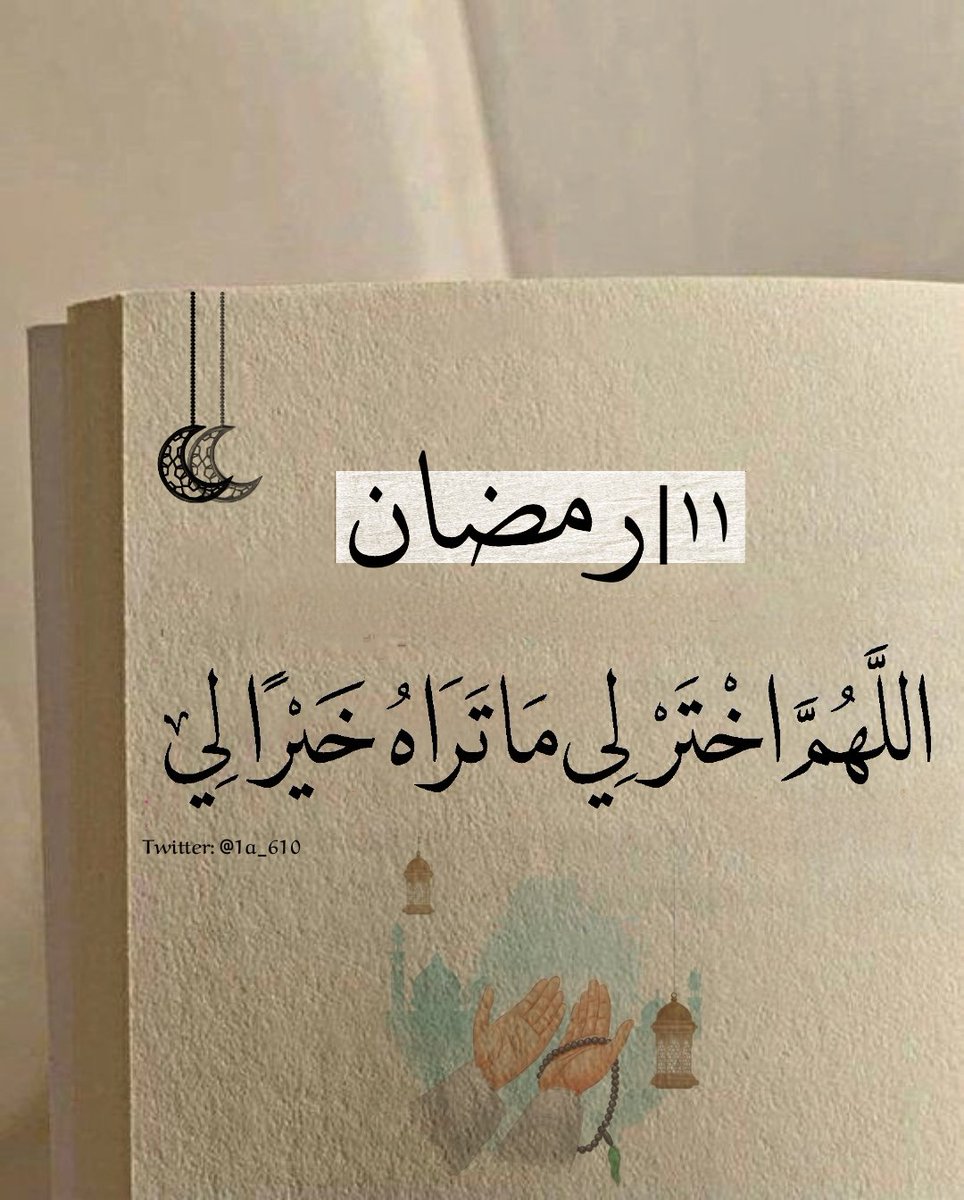 ١١|رمضان
اللَّهُمَّ اخْتَرْ لِي مَا تَرَاهُ خَيْرًا لِي
Twitter: @1a_610